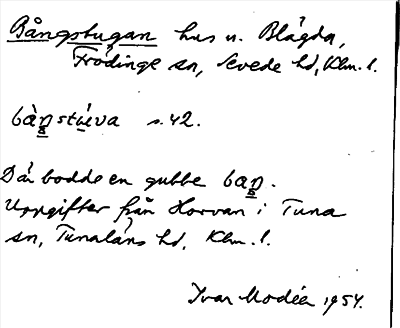 Bångstugan hus u. Blågda,
Frödinge sn, Sevede hd, Klm. l.
bàŋstu̇va s. 42.
Där bodde en gubbe baŋ.
Uppgifter från Horvan i Tuna
sn, Tunaläns hd, Klm. l.
Ivar Modéer 1954.